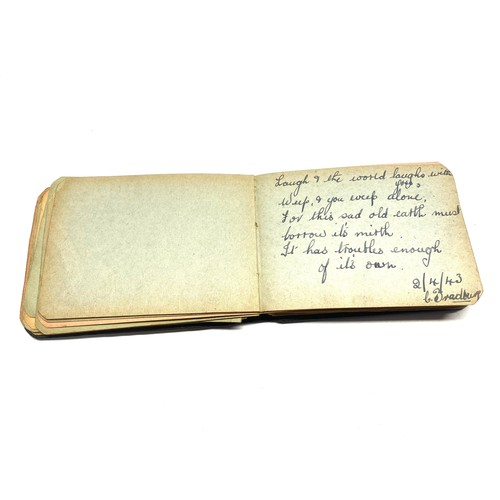 Laugh & the world laughs with
you,
Weep, & you weep alone,
For this sad old earth must
borrow it's mirth.
It has troubles enough
of it's own.
2/4/43
C Bradbury